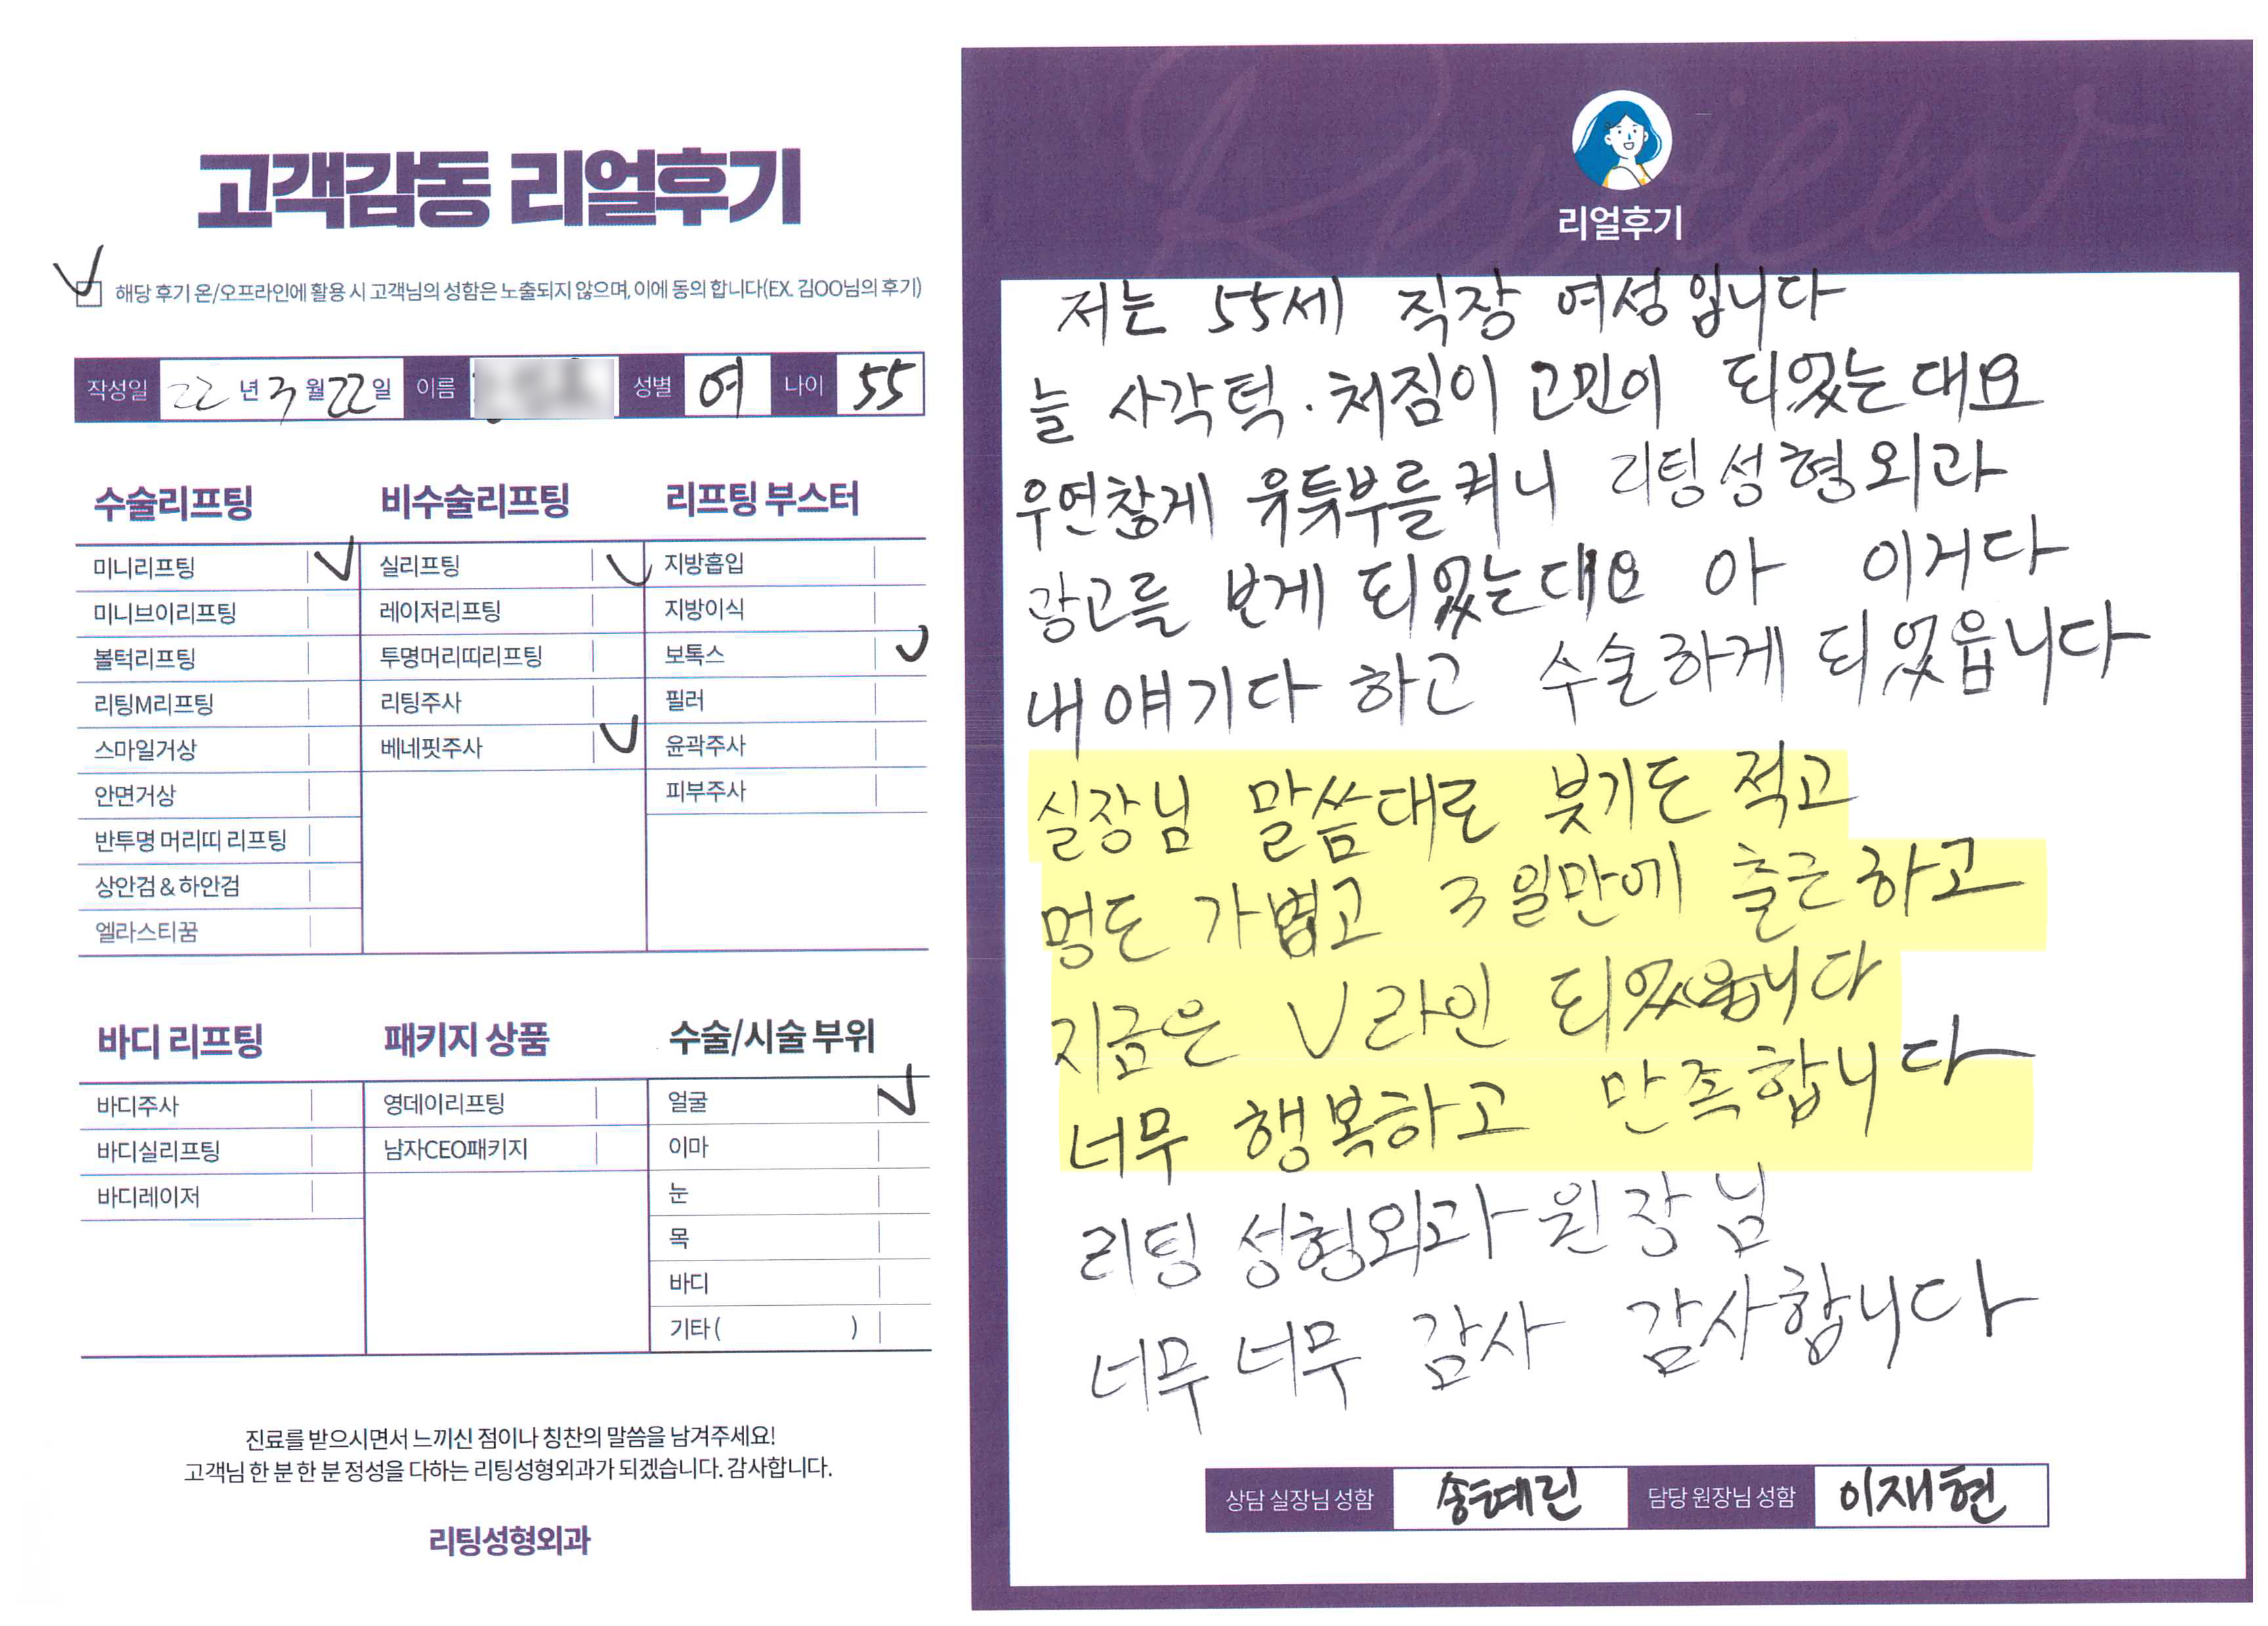 고객감동 리얼후기
해당 후기 온/오프라인에 활용 시 고객님의 성함은 노출되지 않으며, 이에 동의 합니다(EX. 김OO님의 후기)
작성일 22 년 3 월 22 일 이름 성별 여 나이 55
수술리프팅
미니리프팅
미니브이리프팅
볼턱리프팅
리팅M리프팅
스마일거상
안면거상
반투명 머리띠 리프팅
상안검 & 하안검
엘라스티꿈
비수술리프팅
실리프팅
레이저리프팅
투명머리띠리프팅
리팅주사
베네핏주사
리프팅 부스터
지방흡입
지방이식
보톡스
필러
윤곽주사
피부주사
바디 리프팅
바디주사
바디실리프팅
바디레이저
패키지 상품
영데이리프팅
남자CEO패키지
수술/시술 부위
얼굴
이마
눈
목
바디
기타 ( )
진료를 받으시면서 느끼신 점이나 칭찬의 말씀을 남겨주세요!
고객님 한 분 한 분 정성을 다하는 리팅성형외과가 되겠습니다. 감사합니다.
리팅성형외과
Review
리얼후기
저는 55세 직장 여성입니다
늘 사각턱 · 처짐이 고민이 되었는대요
우연찮게 유튜부를 켜니 리팅성형외과
광고를 보게 되었는대요 아 이거다
내 얘기다 하고 수술하게 되었읍니다
실장님 말씀대로 붓기도 적고
멍도 가볍고 3일만에 출근하고
지금은 V라인 되었읍니다
너무 행복하고 만족합니다
리팅 성형외과 원장님
너무 너무 감사 감사합니다
상담 실장님 성함 송예린 담당 원장님 성함 이재현